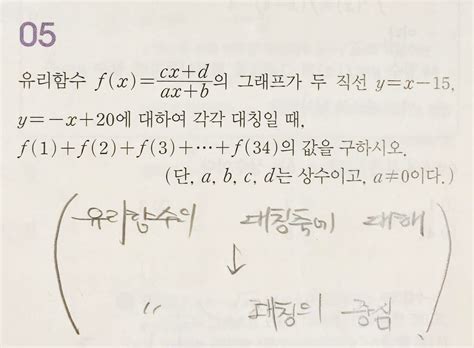 05
유리함수 f(x)=\frac{cx+d}{ax+b}의 그래프가 두 직선 y=x-15,
y=-x+20에 대하여 각각 대칭일 때,
f(1)+f(2)+f(3)+⋯+f(34)의 값을 구하시오.
(단, a, b, c, d는 상수이고, a≠0이다.)
유리함수의 대칭축에 대해
↓
〃 대칭의 중심